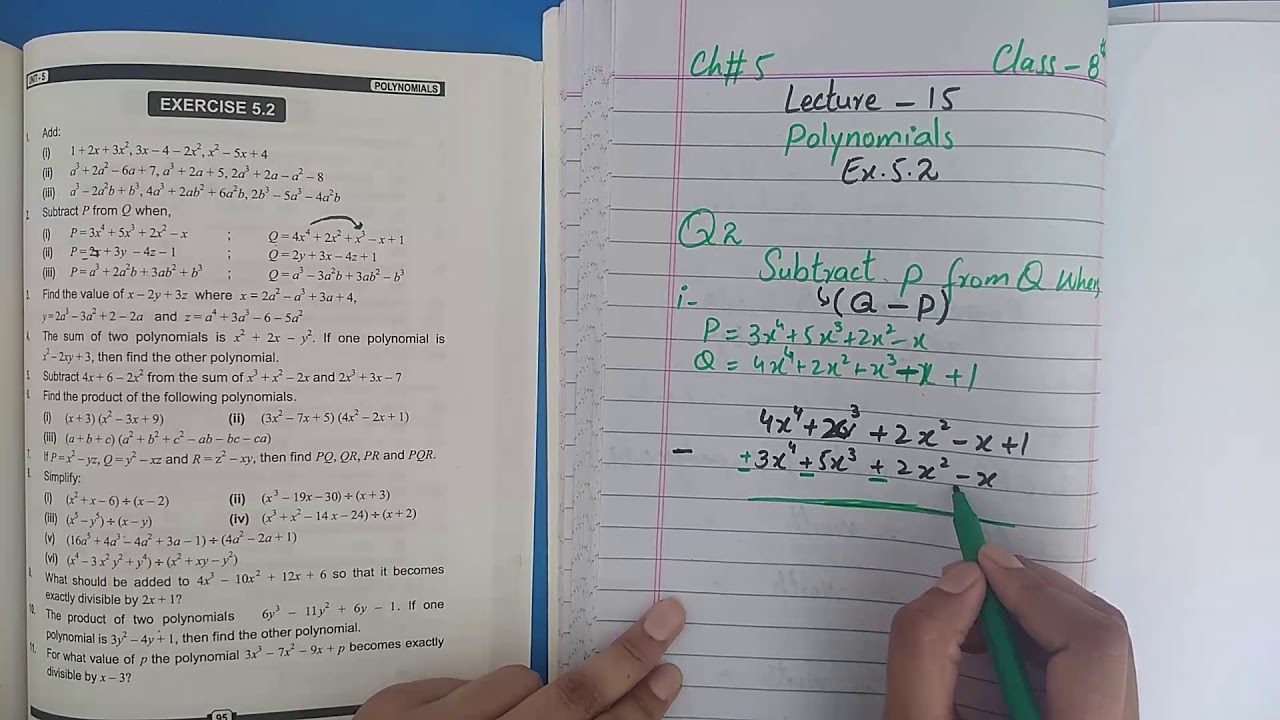 UNIT - 5
POLYNOMIALS
EXERCISE 5.2
1. Add:
(i) 1+2x+3x², 3x−4−2x², x²−5x+4
(ii) a³+2a²−6a+7, a³+2a+5, 2a³+2a−a²−8
(iii) a³−2a²b+b³, 4a³+2ab²+6a²b, 2b³−5a³−4a²b
2. Subtract P from Q when,
(i) P=3x⁴+5x³+2x²−x ; Q=4x⁴+2x²+x³−x+1
(ii) P=2x+3y−4z−1 ; Q=2y+3x−4z+1
(iii) P=a³+2a²b+3ab²+b³ ; Q=a³−3a²b+3ab²−b³
3. Find the value of x−2y+3z where x=2a²−a³+3a+4,
y=2a³−3a²+2−2a and z=a⁴+3a³−6−5a²
4. The sum of two polynomials is x²+2x−y². If one polynomial is
x²−2xy+3, then find the other polynomial.
5. Subtract 4x+6−2x² from the sum of x³+x²−2x and 2x³+3x−7
6. Find the product of the following polynomials.
(i) (x+3)(x²−3x+9) (ii) (3x²−7x+5)(4x²−2x+1)
(iii) (a+b+c)(a²+b²+c²−ab−bc−ca)
7. If P=x²−yz, Q=y²−xz and R=z²−xy, then find PQ, QR, PR and PQR.
8. Simplify:
(i) (x²+x−6)÷(x−2) (ii) (x³−19x−30)÷(x+3)
(iii) (x⁵−y⁵)÷(x−y) (iv) (x³+x²−14x−24)÷(x+2)
(v) (16a⁵+4a³−4a²+3a−1)÷(4a²−2a+1)
(vi) (x⁴−3x²y²+y⁴)÷(x²+xy−y²)
9. What should be added to 4x³−10x²+12x+6 so that it becomes
exactly divisible by 2x+1?
10. The product of two polynomials 6y³−11y²+6y−1. If one
polynomial is 3y²−4y+1, then find the other polynomial.
11. For what value of p the polynomial 3x³−7x²−9x+p becomes exactly
divisible by x−3?
95
Ch# 5 Class-8
Lecture - 15
Polynomials
Ex.5.2
Q2
Subtract P from Q When,
i- (Q - P)
P = 3x⁴+5x³+2x²-x
Q = 4x⁴+2x²+x³-x+1
4x⁴+ x³+2x²-x+1
- ±3x⁴+5x³+2x²-x